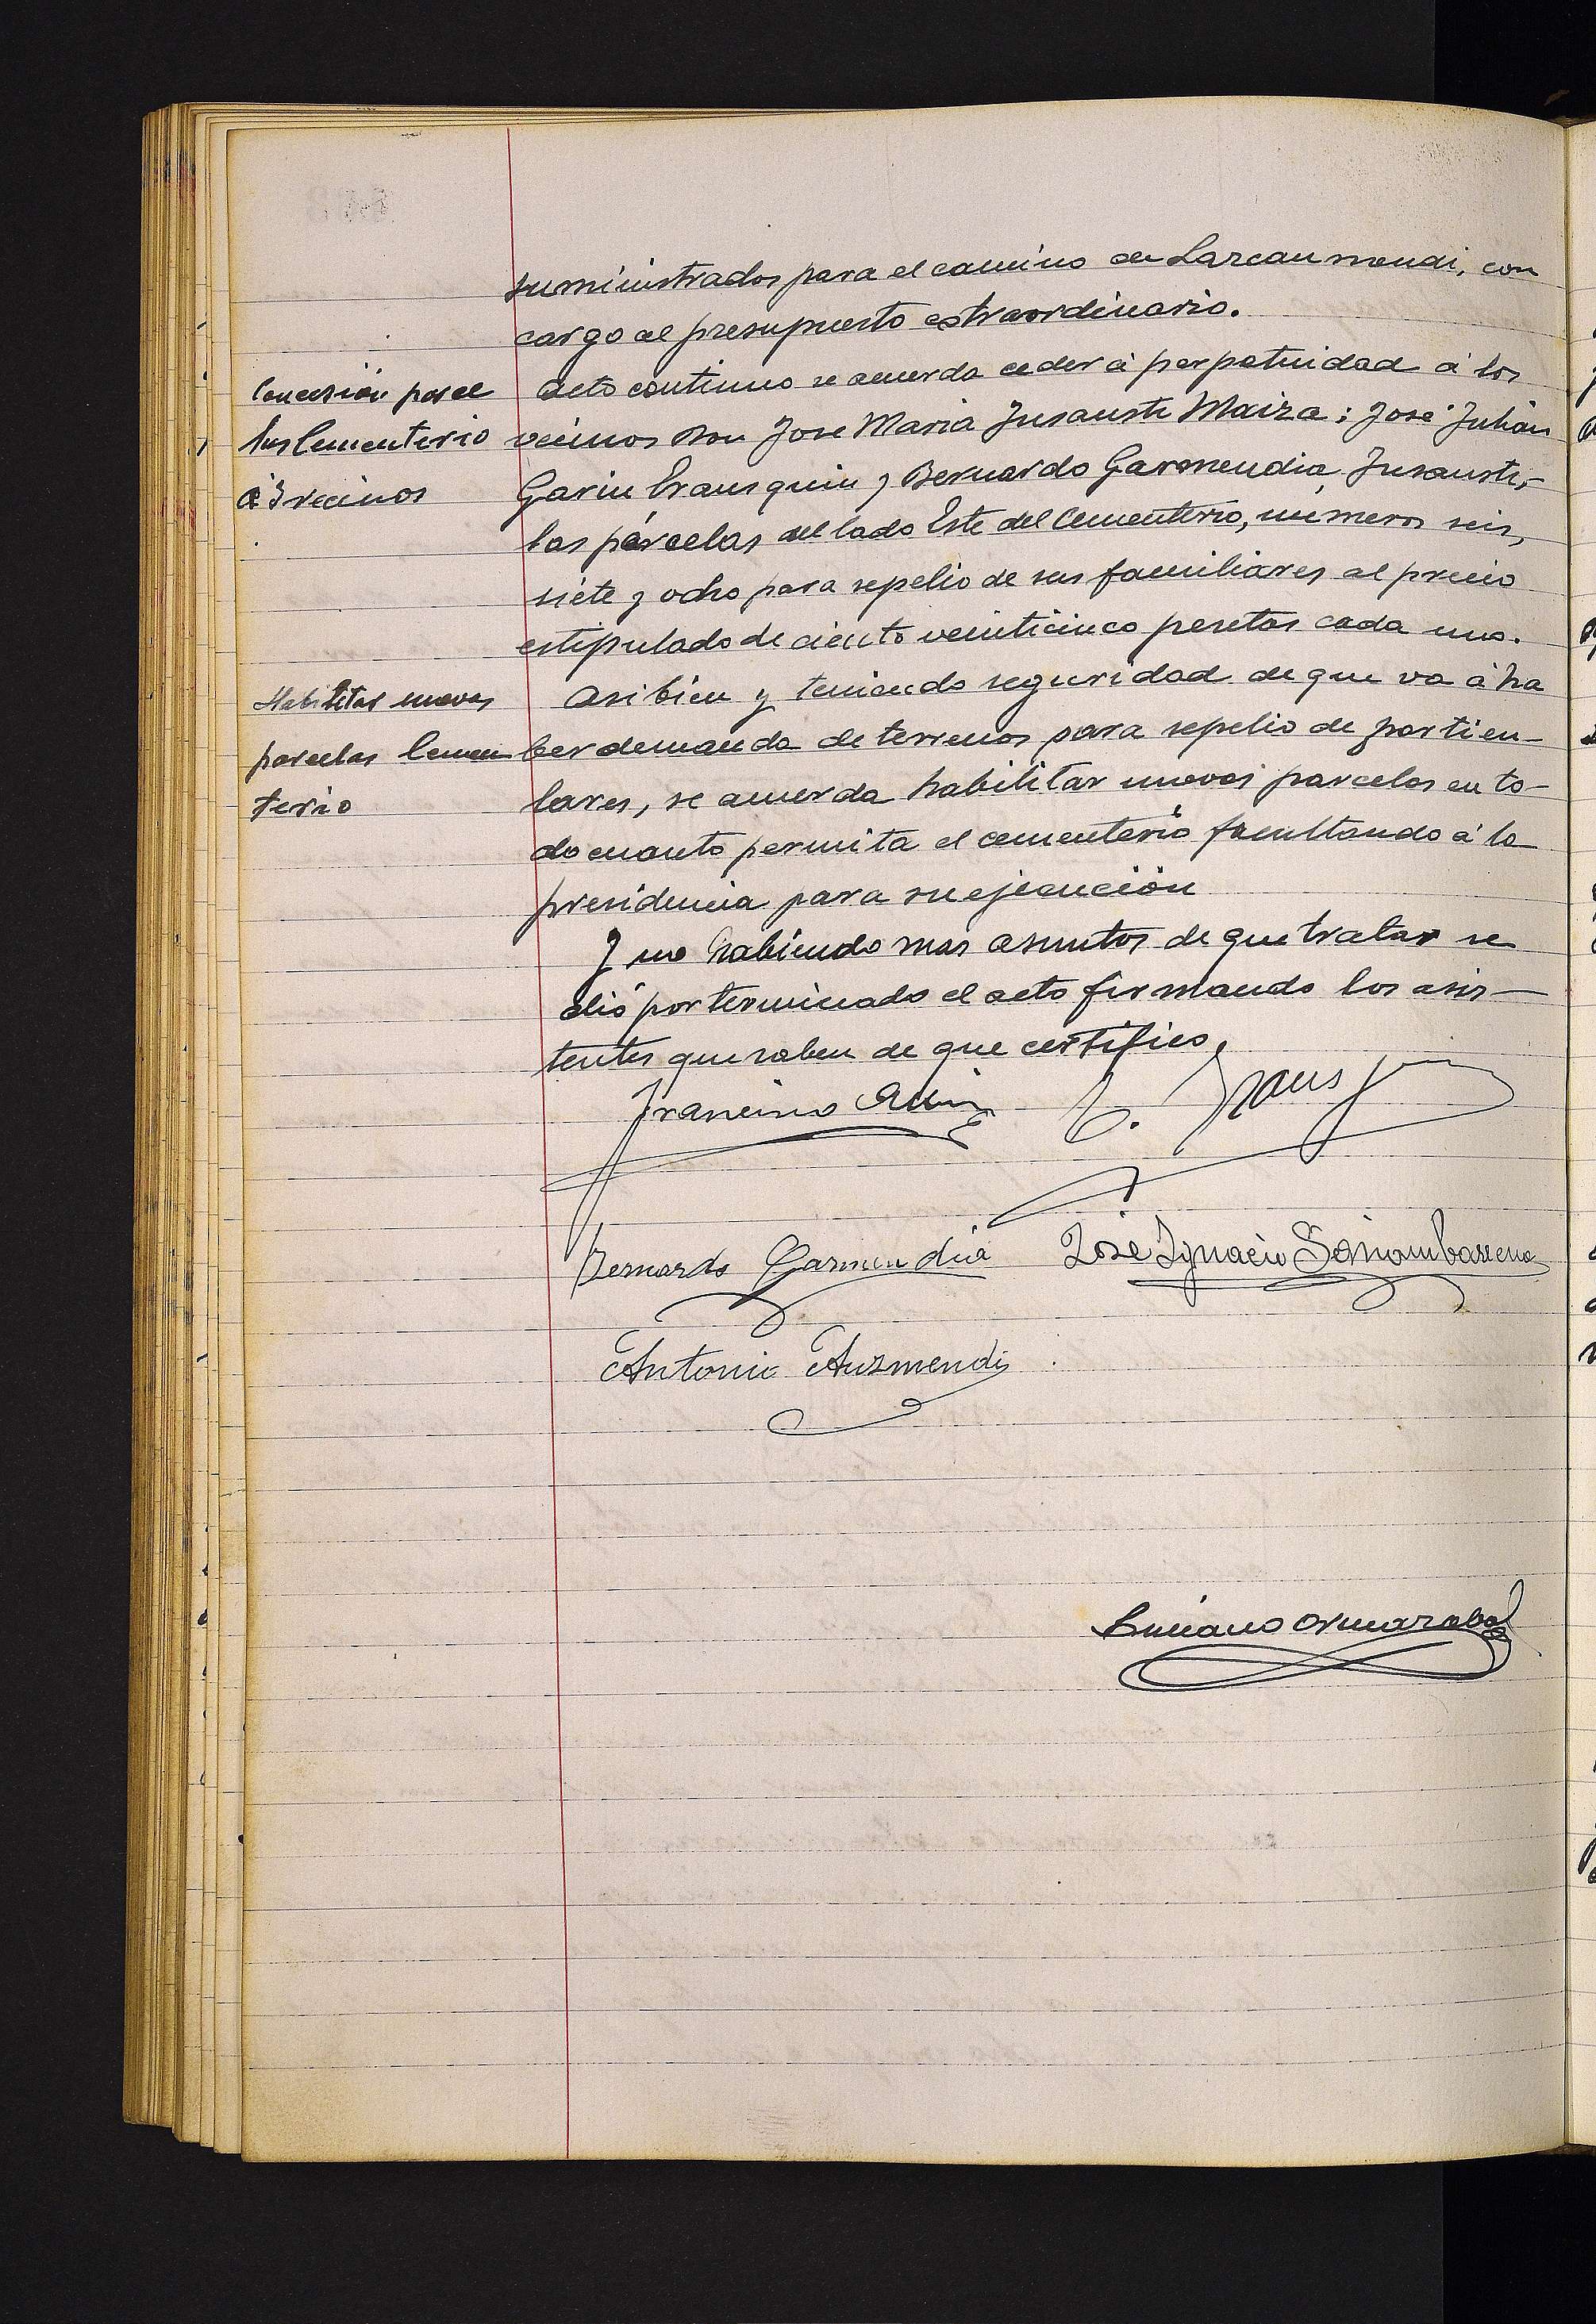 suministrados para el camino de Larcaumendi, con
cargo al presupuesto extraordinario.
Concesión parce
las Cementerio
á 3 vecinos
Acto continuo se acuerda ceder á perpetuidad á los
vecinos Don Jose Maria Jusausti Maiza; José Julián
Garin Erausquin y Bernardo Garmendia Jusausti,
las parcelas del lado Este del Cementerio, números seis,
siete y ocho para sepelio de sus familiares al precio
estipulado de ciento veinticinco pesetas cada una.
Habilitar nuevas
parcelas Cemen
terio
Asi bien y teniendo seguridad de que va á ha
ber demanda de terrenos para sepelio de particu-
lares, se acuerda habilitar nuevas parcelas en to-
do cuanto permita el cementerio facultando á la
presidencia para su ejecución
Y no habiendo mas asuntos de que tratar se
dió por terminado el acto firmando los asis-
tentes que saben de que certifico,
Francisco
Bernardo Garmendia José Ygnacio Soriambarrena
Antonio Auzmendi
Luciano Ormazabal